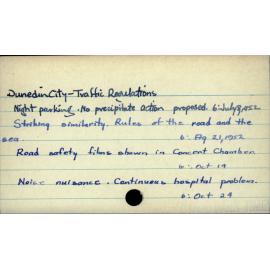 Dunedin City - Traffic Regulations
Night parking. No precipitate action proposed. 6: July 8, 1952
Striking similarity. Rules of the road and the
sea.
6: Ag 21, 1952
Road safety films shown in Concert Chamber.
6: Oct 14
Noise nuisance. Continuous hospital problem.
6: Oct 24